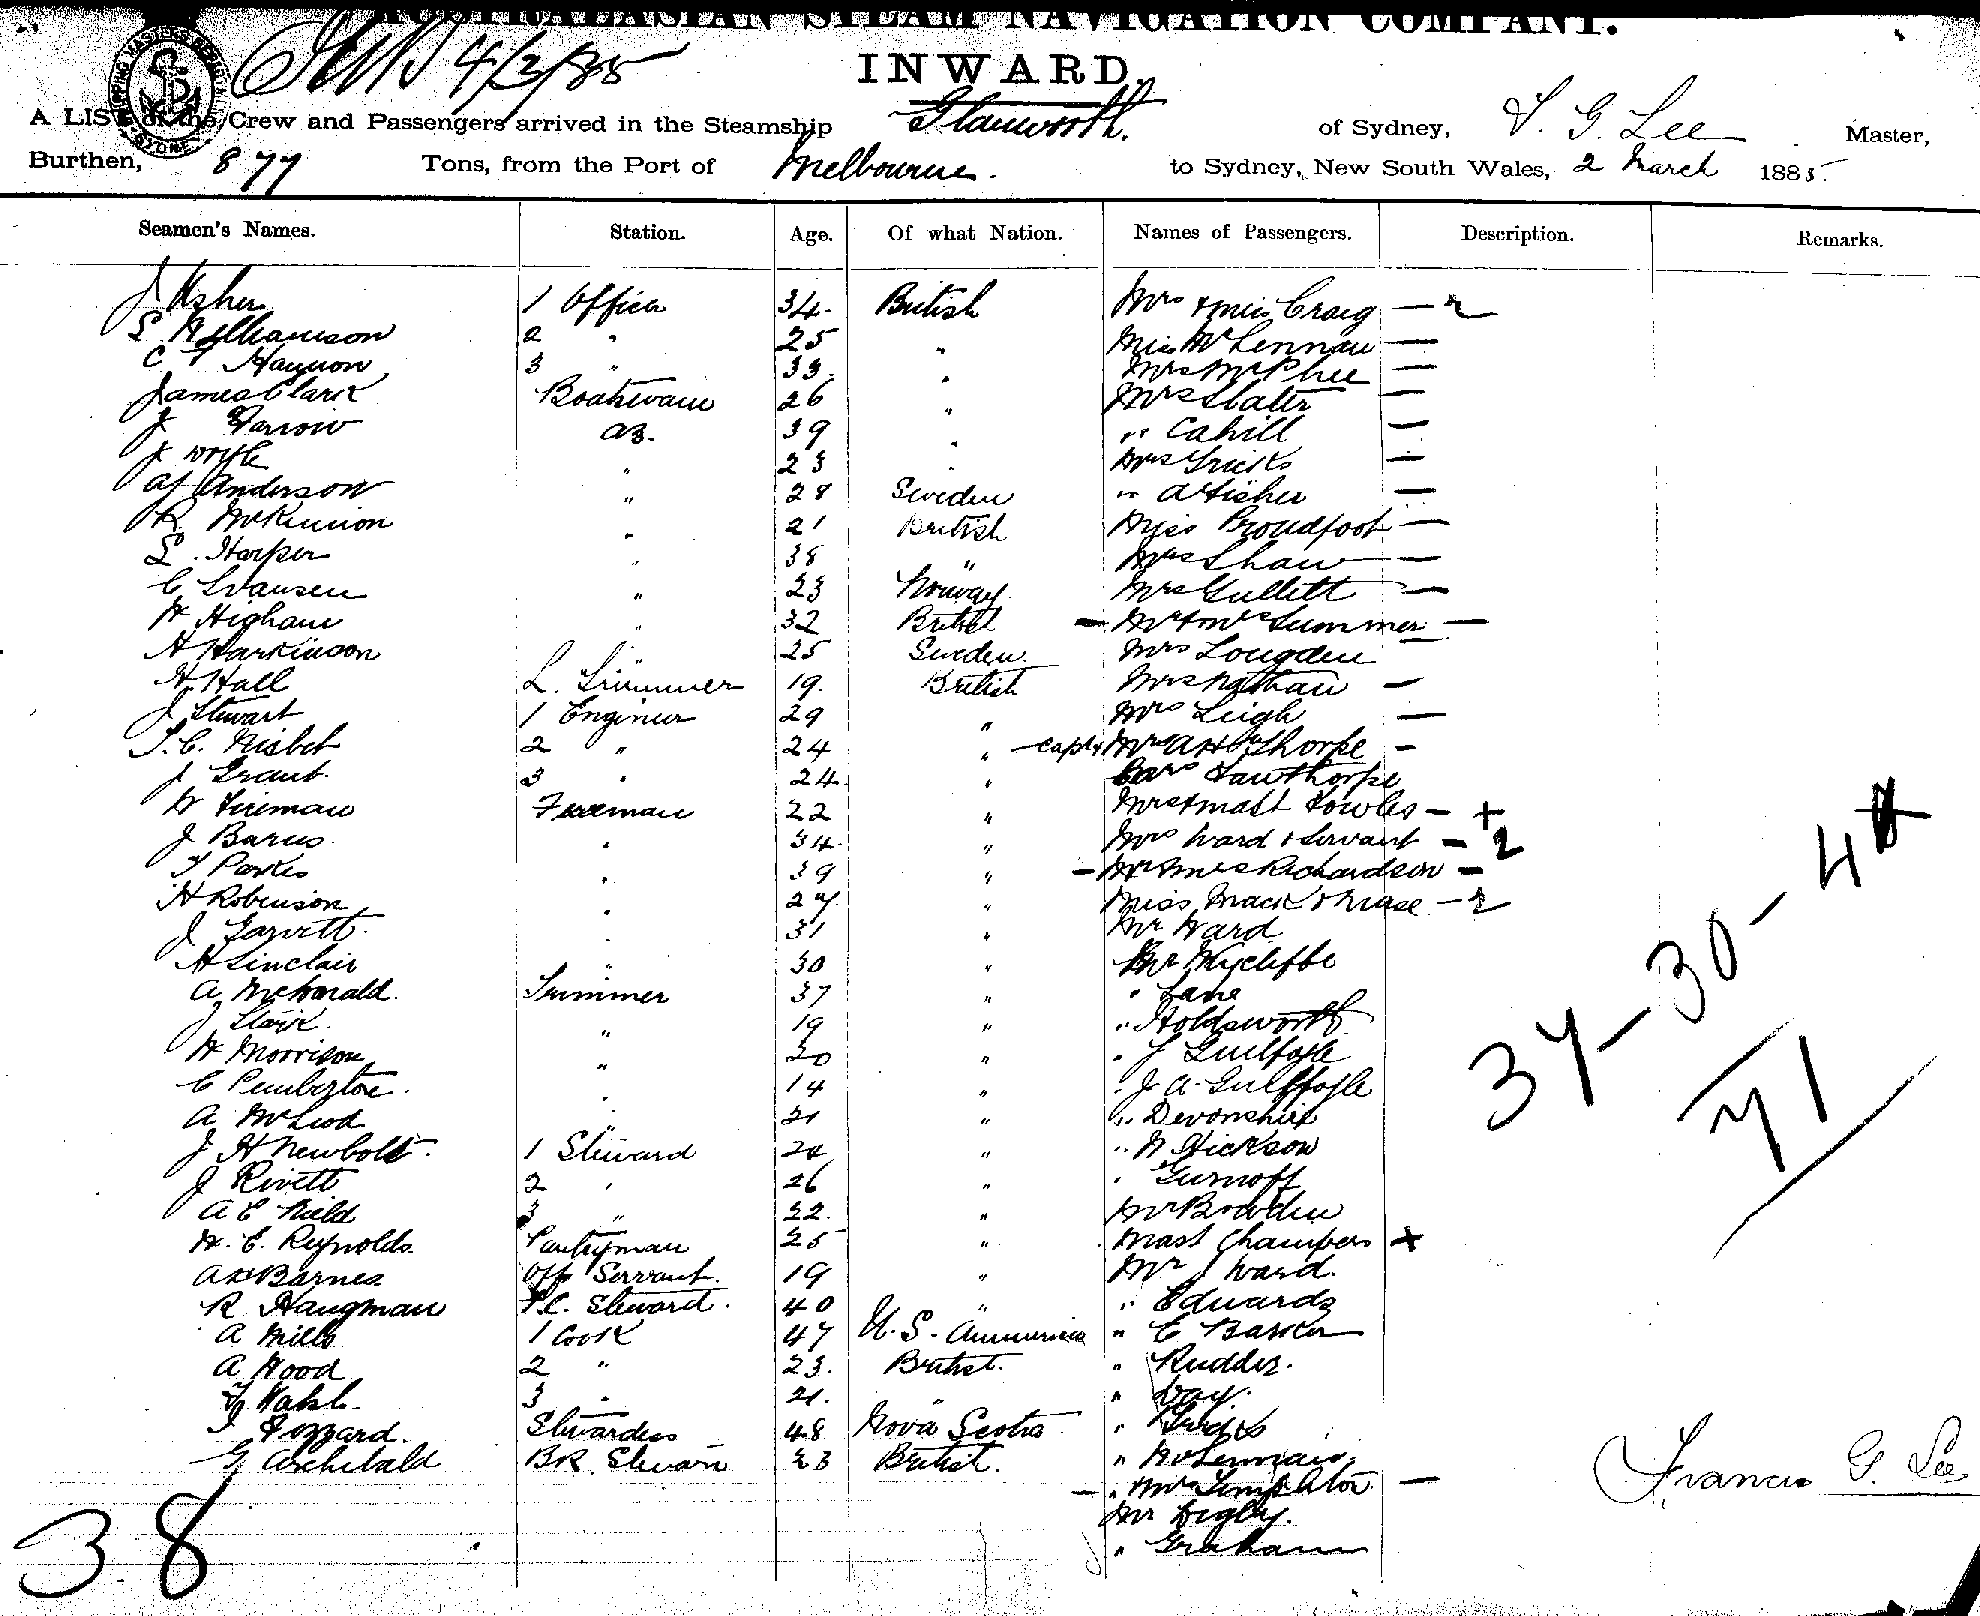 AUSTRALASIAN STEAM NAVIGATION COMPANY.
4/3/85
INWARD.
A LIST of the Crew and Passengers arrived in the Steamship Glanworth. of Sydney, F. G. Lee Master,
Burthen, 877 Tons, from the Port of Melbourne. to Sydney, New South Wales, 2 March 1885.
Seamen's Names. Station. Age. Of what Nation. Names of Passengers. Description. Remarks.
J Usher 1 Officer 34. British Mrs & Miss Craig — 2
Williamson 2 " 25 " Miss McLennan —
C 3 " 33. " Mrs McPhee —
James Clark Boatswain 26 " Mrs Slater —
J Farrow AB. 39 " " Cahill —
J " 23 " Mrs —
Anderson " 28 Sweden " A Fisher —
R McKinnon " 21 British Miss Proudfoot —
Harper " 38 " Mrs Shaw —
C " 23 Norway Mrs Gullett —
W Higham " 32 British — Mr & Mrs Summer —
A Harkinson " 25 Sweden. Mrs Longden —
H Hall L. Trimmer 19. British Mrs Nathan —
J Stewart 1 Engineer 29 " Mrs Leigh —
T. C. Nisbet 2 " 24 " Capt & Mrs —
J Grant. 3 " 24 "
W Fireman Fireman 22 " Mrs & Mast Fowles — +
J Barns " 34. " Mrs Ward & Servant — 2
T Parkes " 39 " — Mr & Mrs Richardson —
H Robinson " 27 " Miss Mack & Nurse — 2
J Garvett. " 31 " Mr Ward
H Sinclair " 30 " Mr Wycliffe
A McDonald. Trimmer 37 " " Lane
J Stark. " 19 " " Holdsworth
W Morrison " 20 " " J Guilfoyle
C Pemberton. " 14 " " J. A. Guilfoyle
A McLeod " 21 " " Devonshire
J H Newbolt. 1 Steward 24 " " W Hickson
J Rivett 2 " 26 "
A E Nield 3 " 22. " Mr Bowden
W. E. Reynolds. Pantryman 25 " Mast Chambers +
A Barnes Off Servant. 19 " Mr J Ward.
R Hangman F.C. Steward. 40 " " Edwards
A Mills 1 Cook 47 U.S. Ammerica " C Barker
A Wood 2 " 23. British. " Rudder.
Walsh. 3 " 21. " " Day.
Gozzard. Stewardess 48 Nova Scotia "
G Archibald BR. Steward 23 British. " McLennan
— " Mrs Templeton —
Mr Digby.
" Graham
37—30—4
71
38
Francis G. Lee